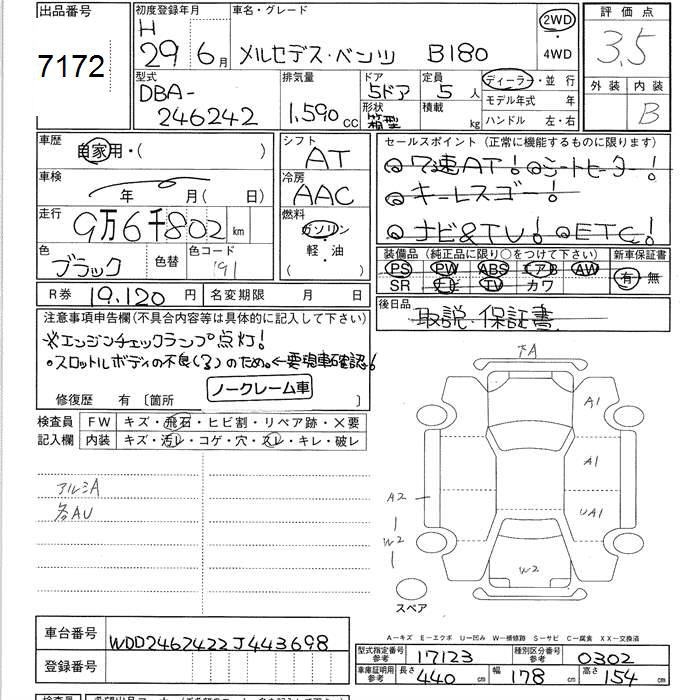 出品番号
7172
初度登録年月
H
29 6月
車名・グレード
メルセデス・ベンツ B180
2WD
・
4WD
評価点
3.5
外装 内装
B
型式
DBA-
246242
排気量
1,590cc
ドア
5ドア
形状
箱型
定員
5人
積載
kg
ディーラー・並行
モデル年式 年
ハンドル 左・右
車歴
自家用・( )
車検
年 月( 日)
走行
9万6千802km
色
ブラック
色替
色コード
191
シフト
AT
冷房
AAC
燃料
ガソリン
・
軽・油
( )
セールスポイント(正常に機能するものに限ります)
◎7速AT! ◎シートヒーター!
◎キーレスゴー!
◎ナビ&TV! ◎ETC!
装備品(純正品に限り○をつけて下さい)
新車保証書
PS PW ABS エアB AW
SR ナビ TV カワ
有・無
R券 19,120円
名変期限 月 日
後日品
取説・保証書
注意事項申告欄(不具合内容等は具体的に記入して下さい)
※エンジンチェックランプ点灯!
・スロットルボディの不良(る)のため。←要現車確認!
ノークレーム車
修復歴 有〔箇所 〕
検査員
記入欄
FW キズ・飛石・ヒビ割・リペア跡・X要
内装 キズ・汚レ・コゲ・穴・スレ・キレ・破レ
アルミA
各AU
下A
A1
A1
UA1
A2
W2
W2
スペア
A-キズ E-エクボ U-凹み W-補修跡 S-サビ C-腐食 XX-交換済
車台番号
WDD2462422J443698
登録番号
型式指定番号
参考
17123
種別区分番号
参考
0302
車庫証明用
参考
長さ
440cm
幅
178cm
高さ
154cm
検査員